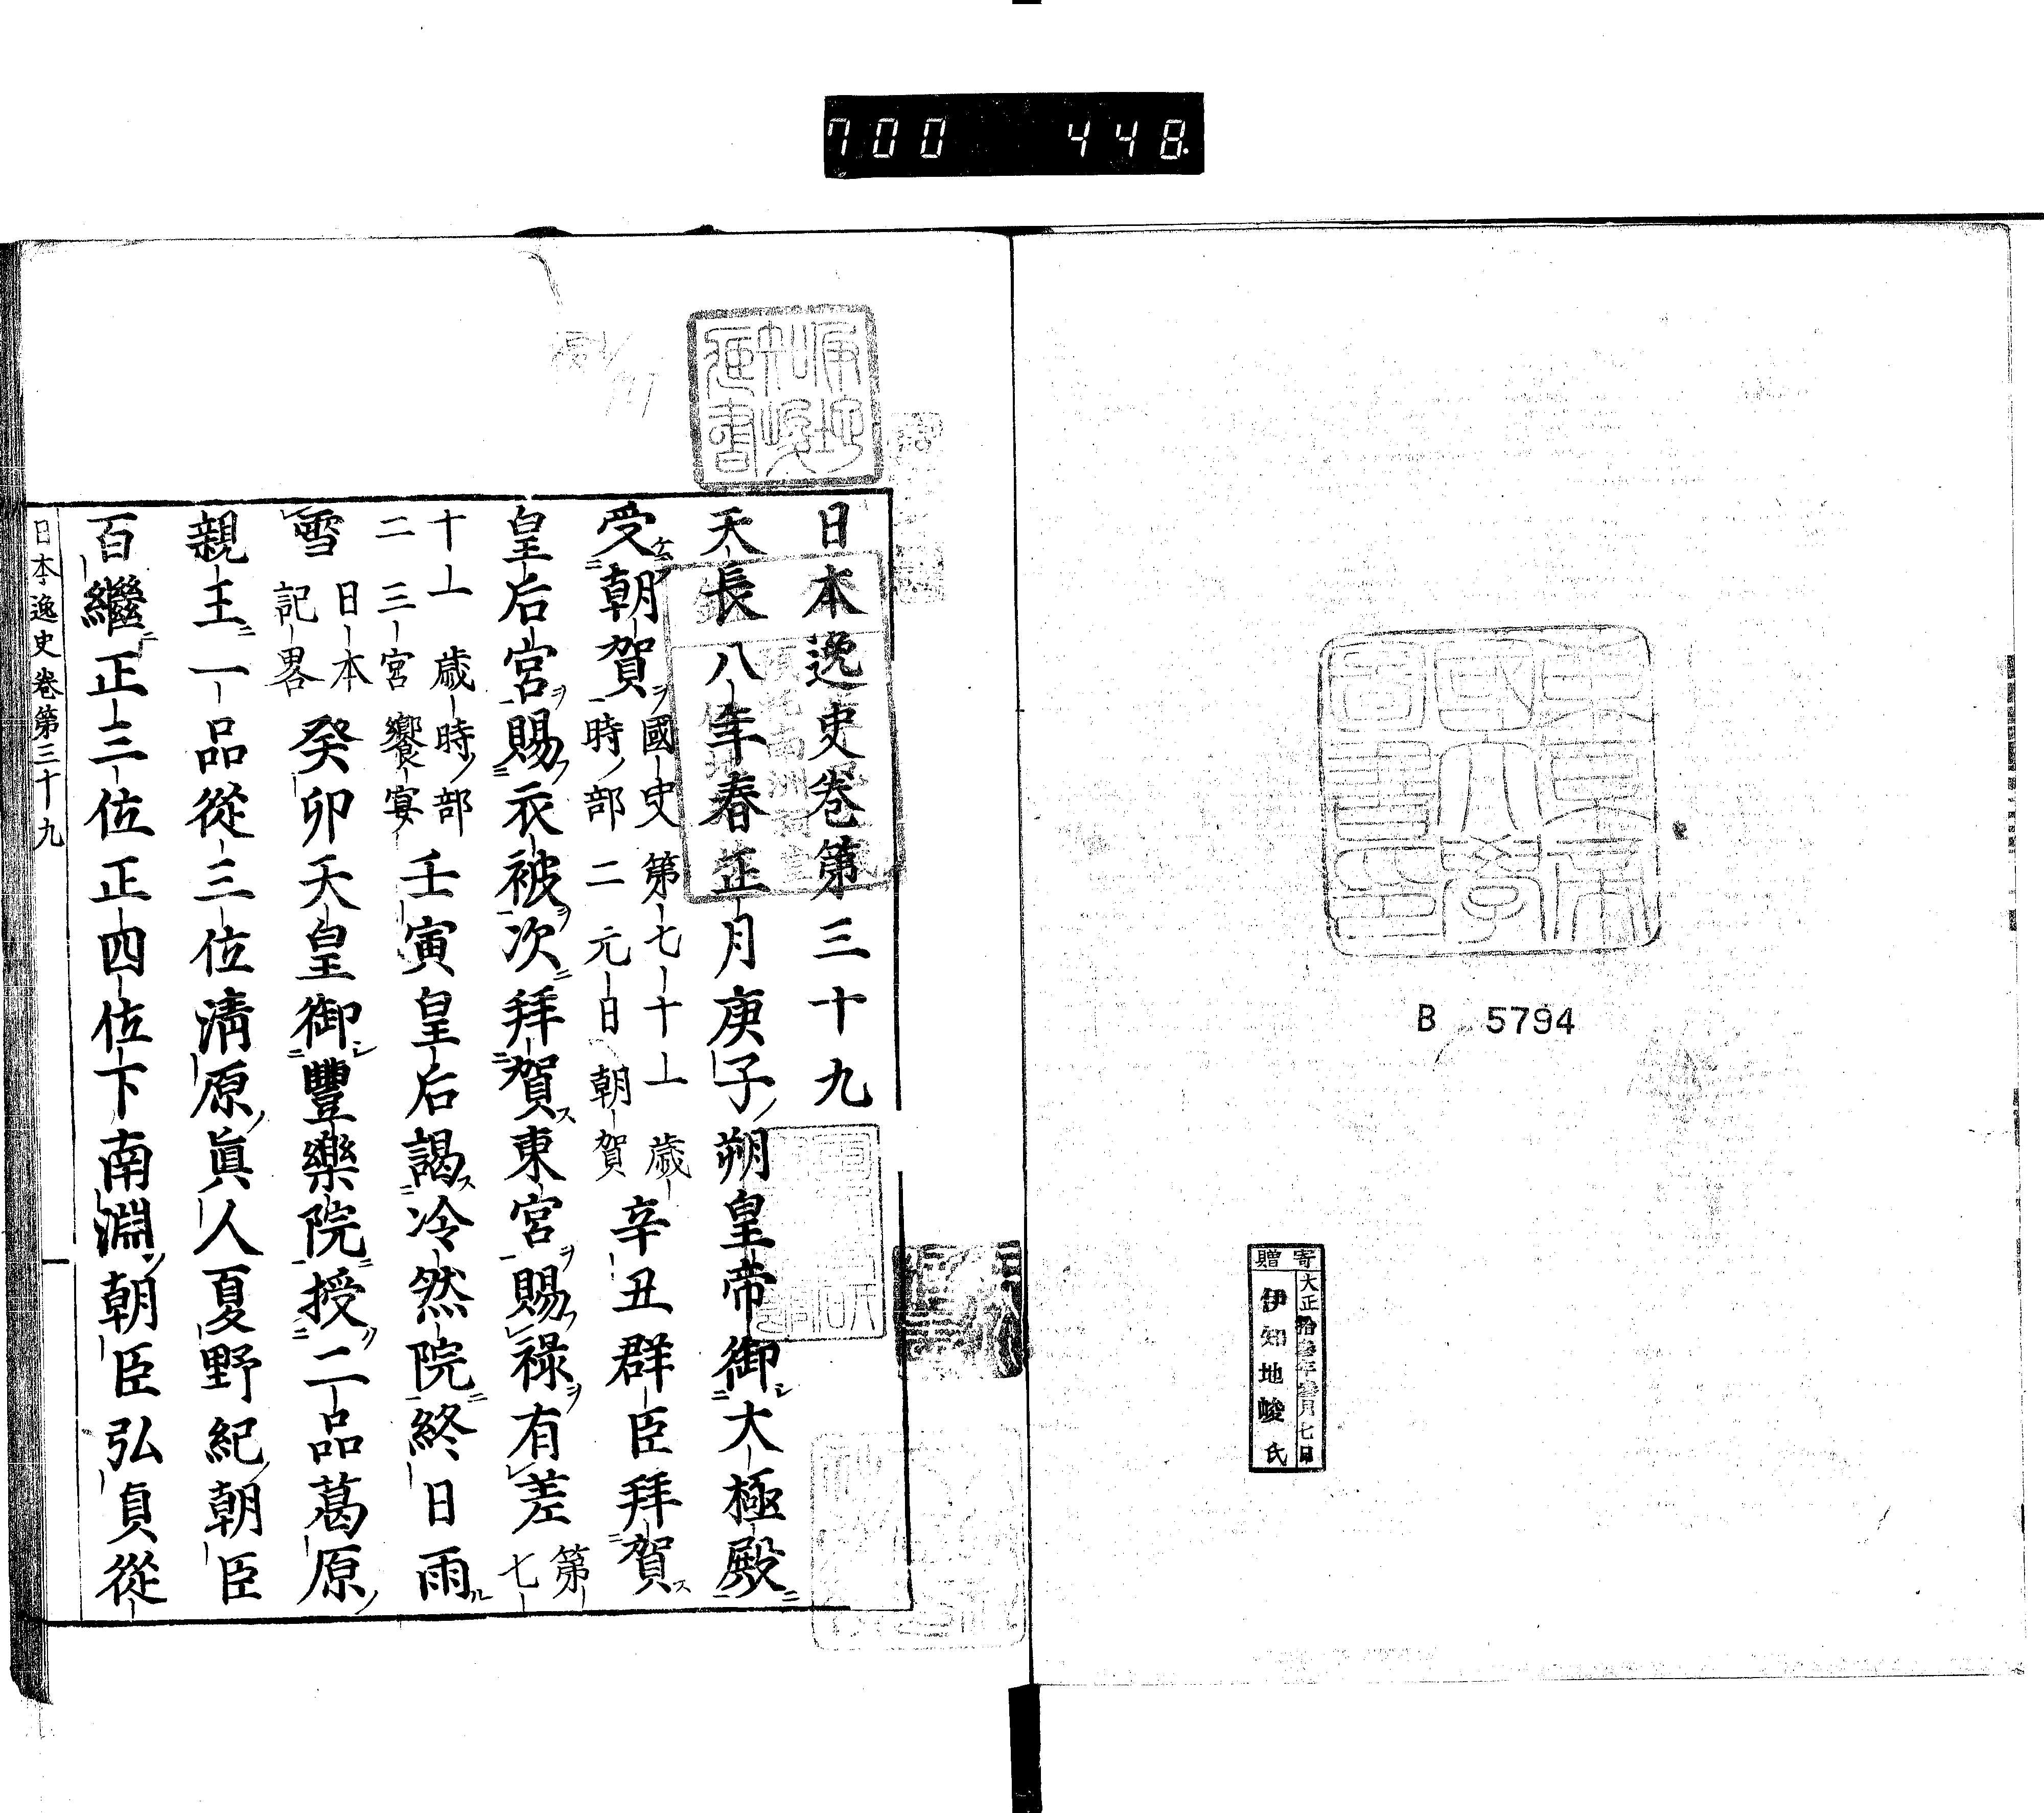 700 448
東京帝
國大學
圖書印
B 5794
寄贈
大正拾參年壹月七日
伊知地峻氏
日本逸史卷第三十九
天長八年春正月庚子朔皇帝御大極殿
受朝賀國史第七十一歳時部二元日朝賀辛丑群臣拜賀
皇后宮賜衣被次拜賀東宮賜祿有差第七
十一歳時部二三宮饗宴壬寅皇后謁冷然院終日雨
雪日本記畧癸卯天皇御豐樂院授二品葛原
親王一品從三位清原眞人夏野紀朝臣
百繼正三位正四位下南淵朝臣弘貞從
日本逸史卷第三十九